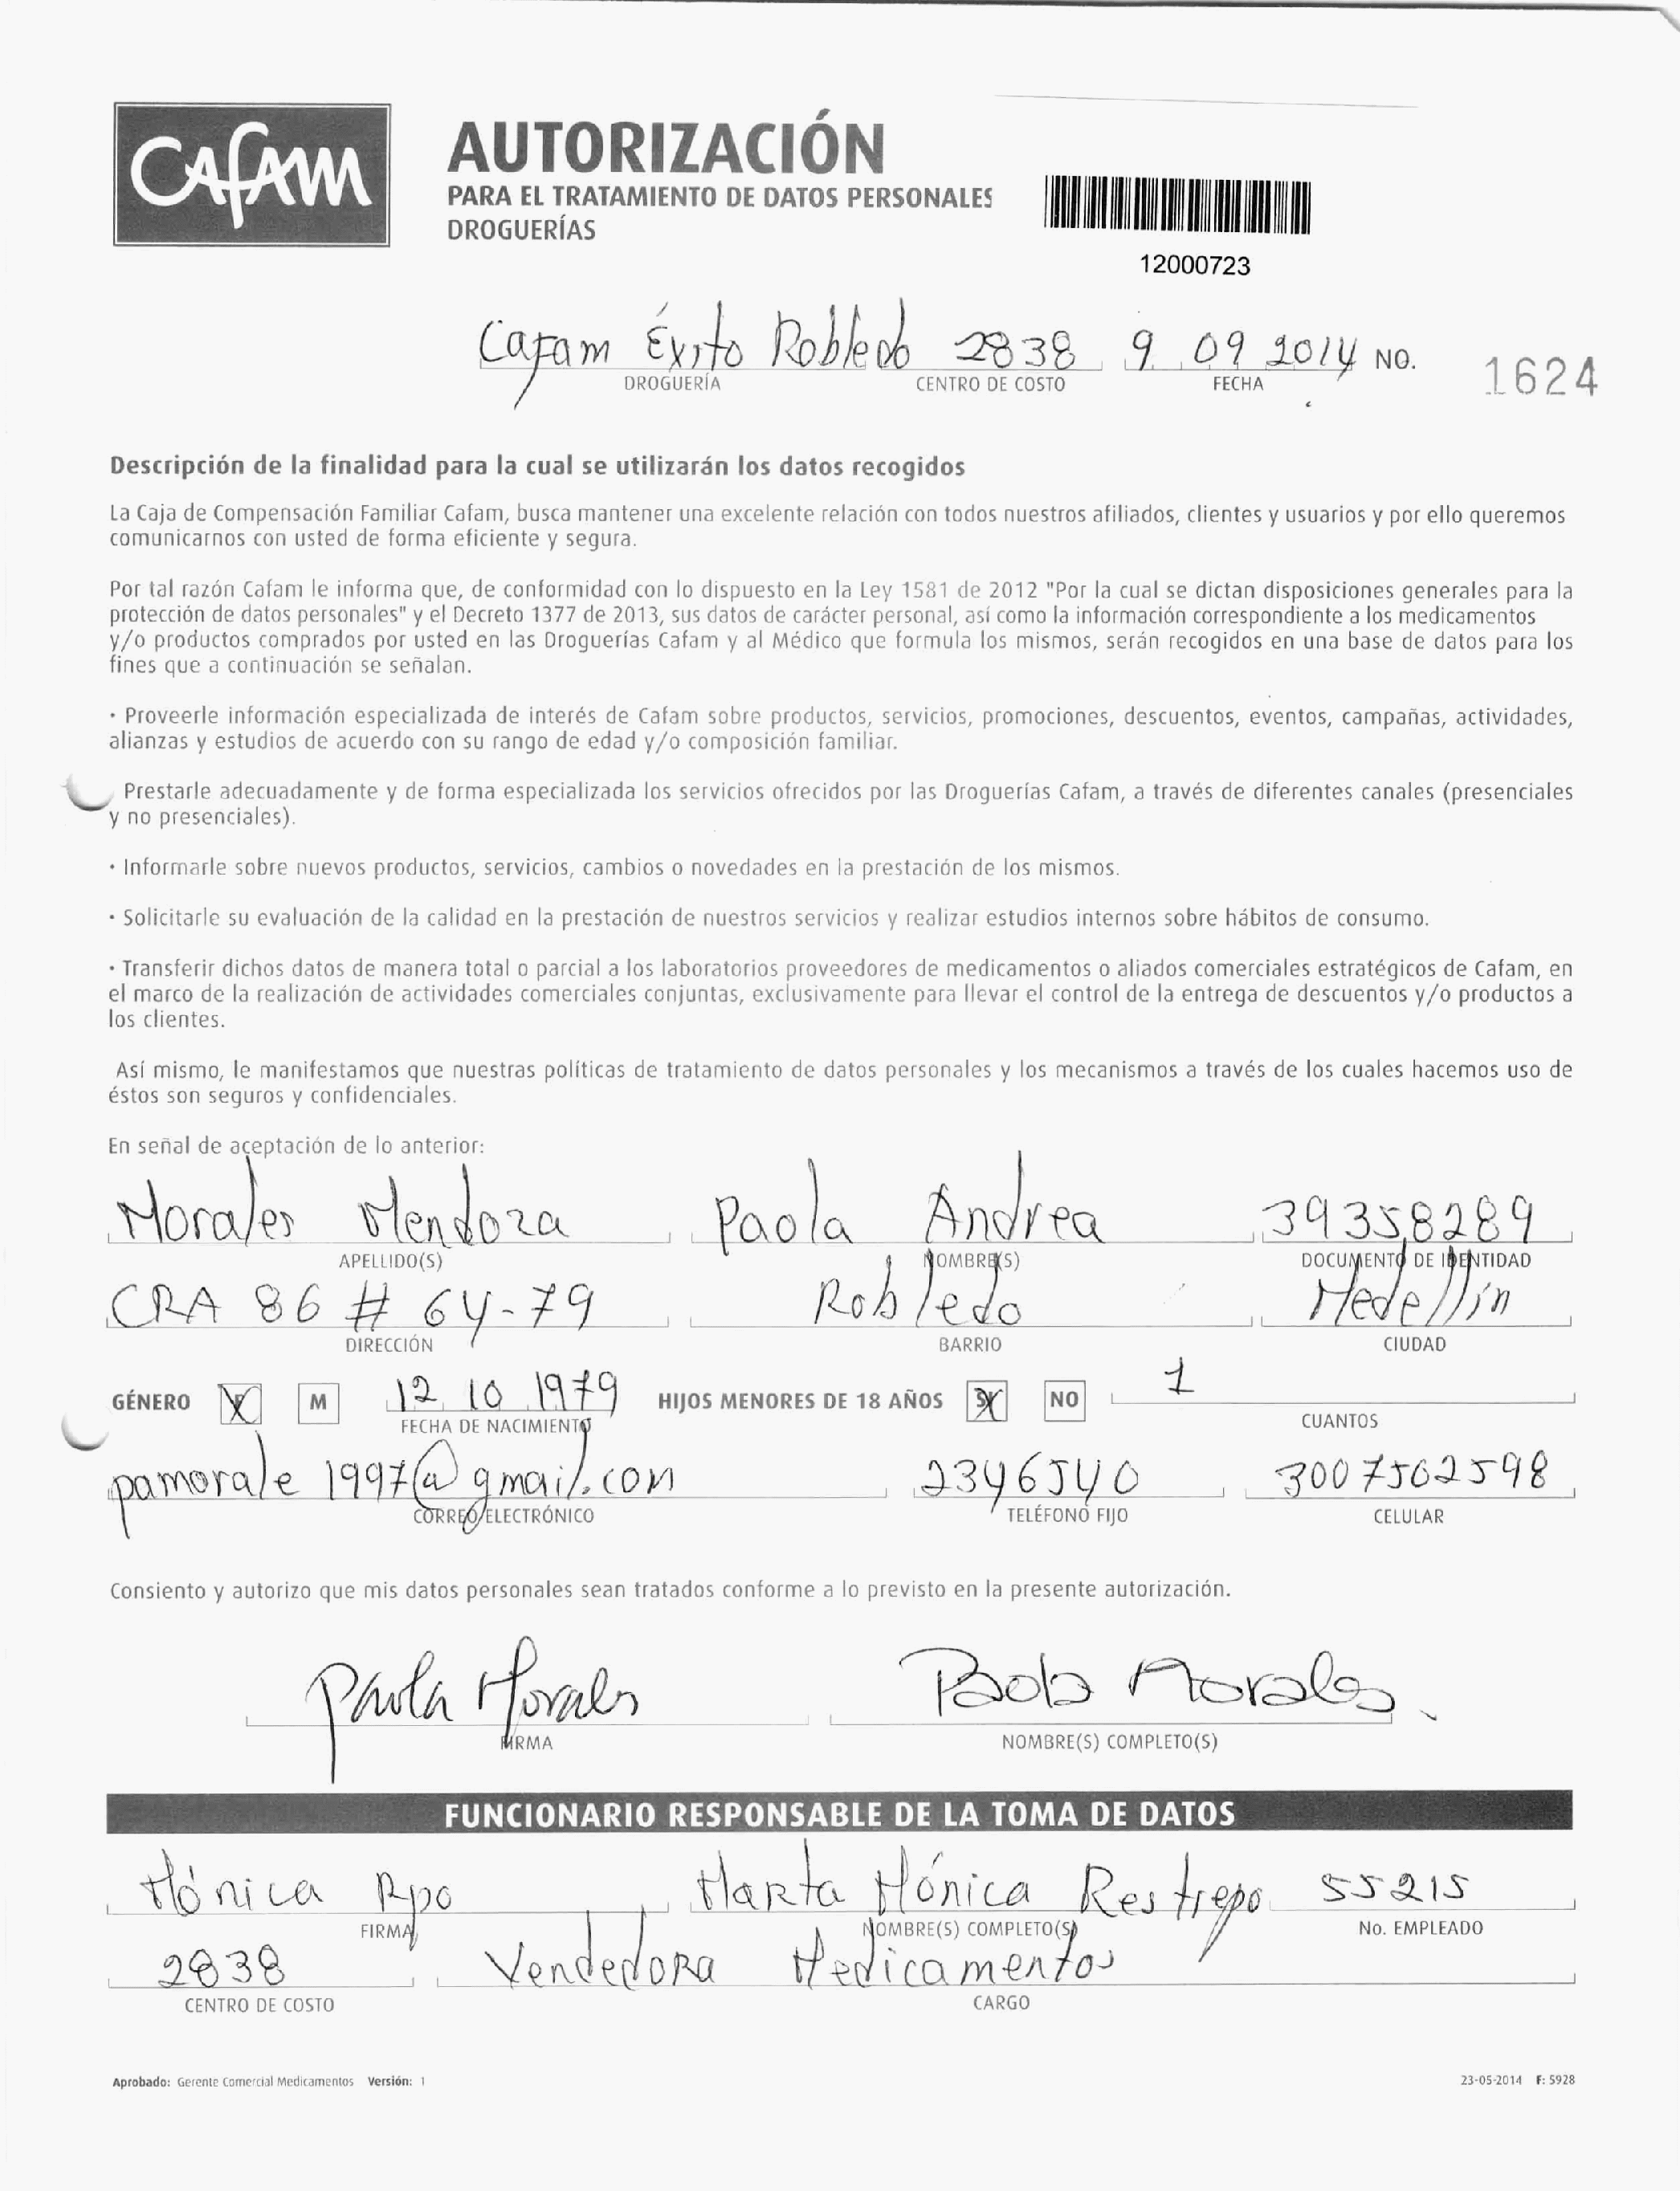 CAFAM
AUTORIZACIÓN
PARA EL TRATAMIENTO DE DATOS PERSONALES
DROGUERÍAS
12000723
Cafam Éxito Robledo 2838 9 09 2014 NO. 1624
DROGUERÍA CENTRO DE COSTO FECHA
Descripción de la finalidad para la cual se utilizarán los datos recogidos
La Caja de Compensación Familiar Cafam, busca mantener una excelente relación con todos nuestros afiliados, clientes y usuarios y por ello queremos
comunicarnos con usted de forma eficiente y segura.
Por tal razón Cafam le informa que, de conformidad con lo dispuesto en la Ley 1581 de 2012 "Por la cual se dictan disposiciones generales para la
protección de datos personales" y el Decreto 1377 de 2013, sus datos de carácter personal, así como la información correspondiente a los medicamentos
y/o productos comprados por usted en las Droguerías Cafam y al Médico que formula los mismos, serán recogidos en una base de datos para los
fines que a continuación se señalan.
· Proveerle información especializada de interés de Cafam sobre productos, servicios, promociones, descuentos, eventos, campañas, actividades,
alianzas y estudios de acuerdo con su rango de edad y/o composición familiar.
Prestarle adecuadamente y de forma especializada los servicios ofrecidos por las Droguerías Cafam, a través de diferentes canales (presenciales
y no presenciales).
· Informarle sobre nuevos productos, servicios, cambios o novedades en la prestación de los mismos.
· Solicitarle su evaluación de la calidad en la prestación de nuestros servicios y realizar estudios internos sobre hábitos de consumo.
· Transferir dichos datos de manera total o parcial a los laboratorios proveedores de medicamentos o aliados comerciales estratégicos de Cafam, en
el marco de la realización de actividades comerciales conjuntas, exclusivamente para llevar el control de la entrega de descuentos y/o productos a
los clientes.
Así mismo, le manifestamos que nuestras políticas de tratamiento de datos personales y los mecanismos a través de los cuales hacemos uso de
éstos son seguros y confidenciales.
En señal de aceptación de lo anterior:
Morales Mendoza Paola Andrea 39358289
APELLIDO(S) NOMBRE(S) DOCUMENTO DE IDENTIDAD
CRA 86 # 64-79 Robledo Medellín
DIRECCIÓN BARRIO CIUDAD
GÉNERO F M 12 10 1979 HIJOS MENORES DE 18 AÑOS SI NO 1
FECHA DE NACIMIENTO CUANTOS
pamorale1997@gmail.com 2346540 3007562598
CORREO ELECTRÓNICO TELÉFONO FIJO CELULAR
Consiento y autorizo que mis datos personales sean tratados conforme a lo previsto en la presente autorización.
Paola Morales Paola Morales
FIRMA NOMBRE(S) COMPLETO(S)
FUNCIONARIO RESPONSABLE DE LA TOMA DE DATOS
Mónica Rpo Marta Mónica Restrepo 55215
FIRMA NOMBRE(S) COMPLETO(S) No. EMPLEADO
2838 Vendedora Medicamentos
CENTRO DE COSTO CARGO
Aprobado: Gerente Comercial Medicamentos Versión: 1 23-05-2014 F: 5928